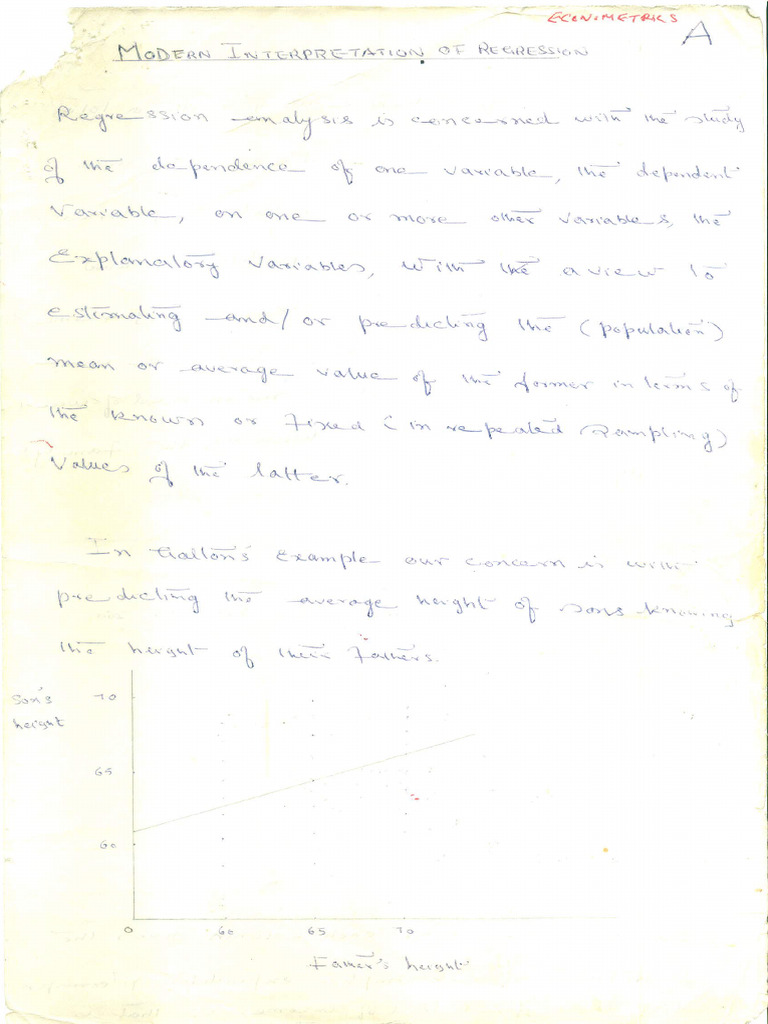 ECONOMETRICS
A
MODERN INTERPRETATION OF REGRESSION
Regression analysis is concerned with the study
of the dependence of one variable, the dependent
Variable, on one or more other variables, the
Explanatory variables, with the a view to
estimating and/or predicting the (population)
mean or average value of the former in terms of
the known or fixed (in repeated Sampling)
Values of the latter.
In Galton's Example our concern is with
predicting the average height of sons knowing
the height of their Fathers.
Son's
height
70
65
60
0 60 65 70
Father's height